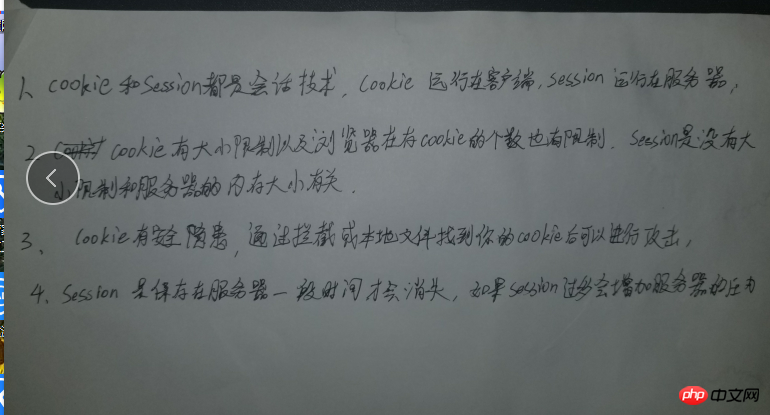 1、cookie和Session都是会话技术，Cookie 运行在客户端，session 运行在服务器，
2、cookie有大小限制以及浏览器在存cookie的个数也有限制，Session是没有大
小限制和服务器的内存大小有关．
3、Cookie有安全隐患，通过拦截或本地文件找到你的cookie后可以进行攻击，
4、Session 是保存在服务器一段时间才会消失，如果session过多会增加服务器的压力
php 中文网